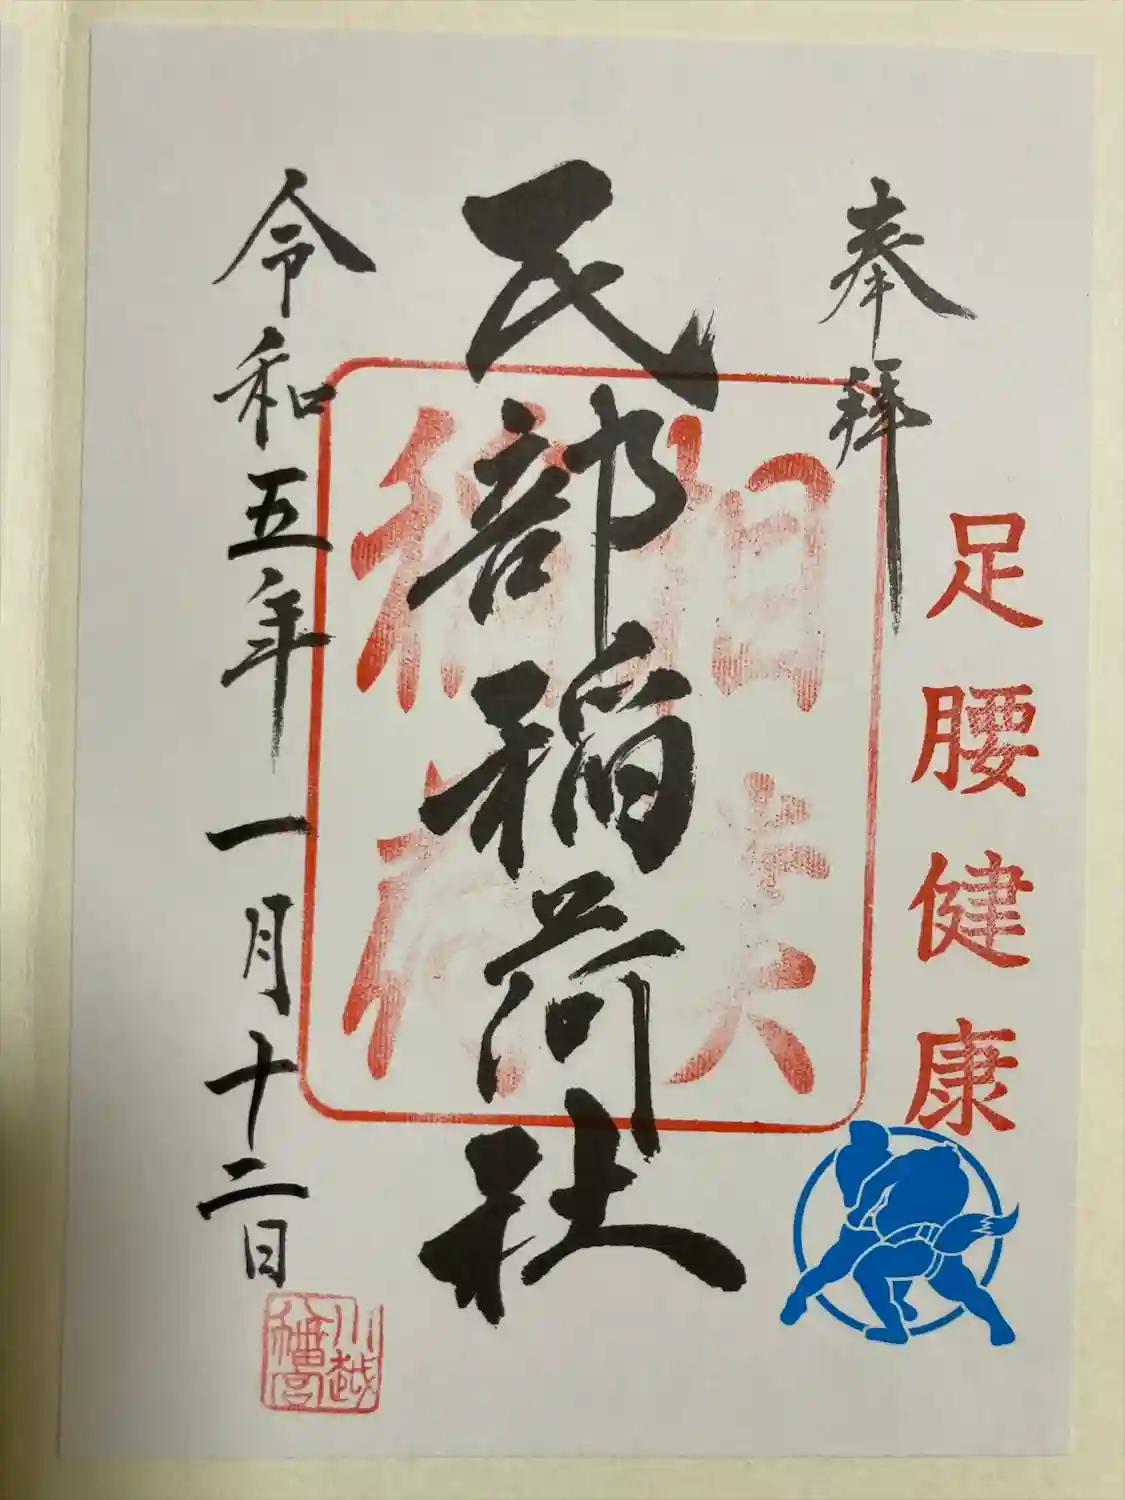 奉拝
足腰健康
民部稲荷社
相撲
稲荷
令和五年一月十二日
川越
八幡宮